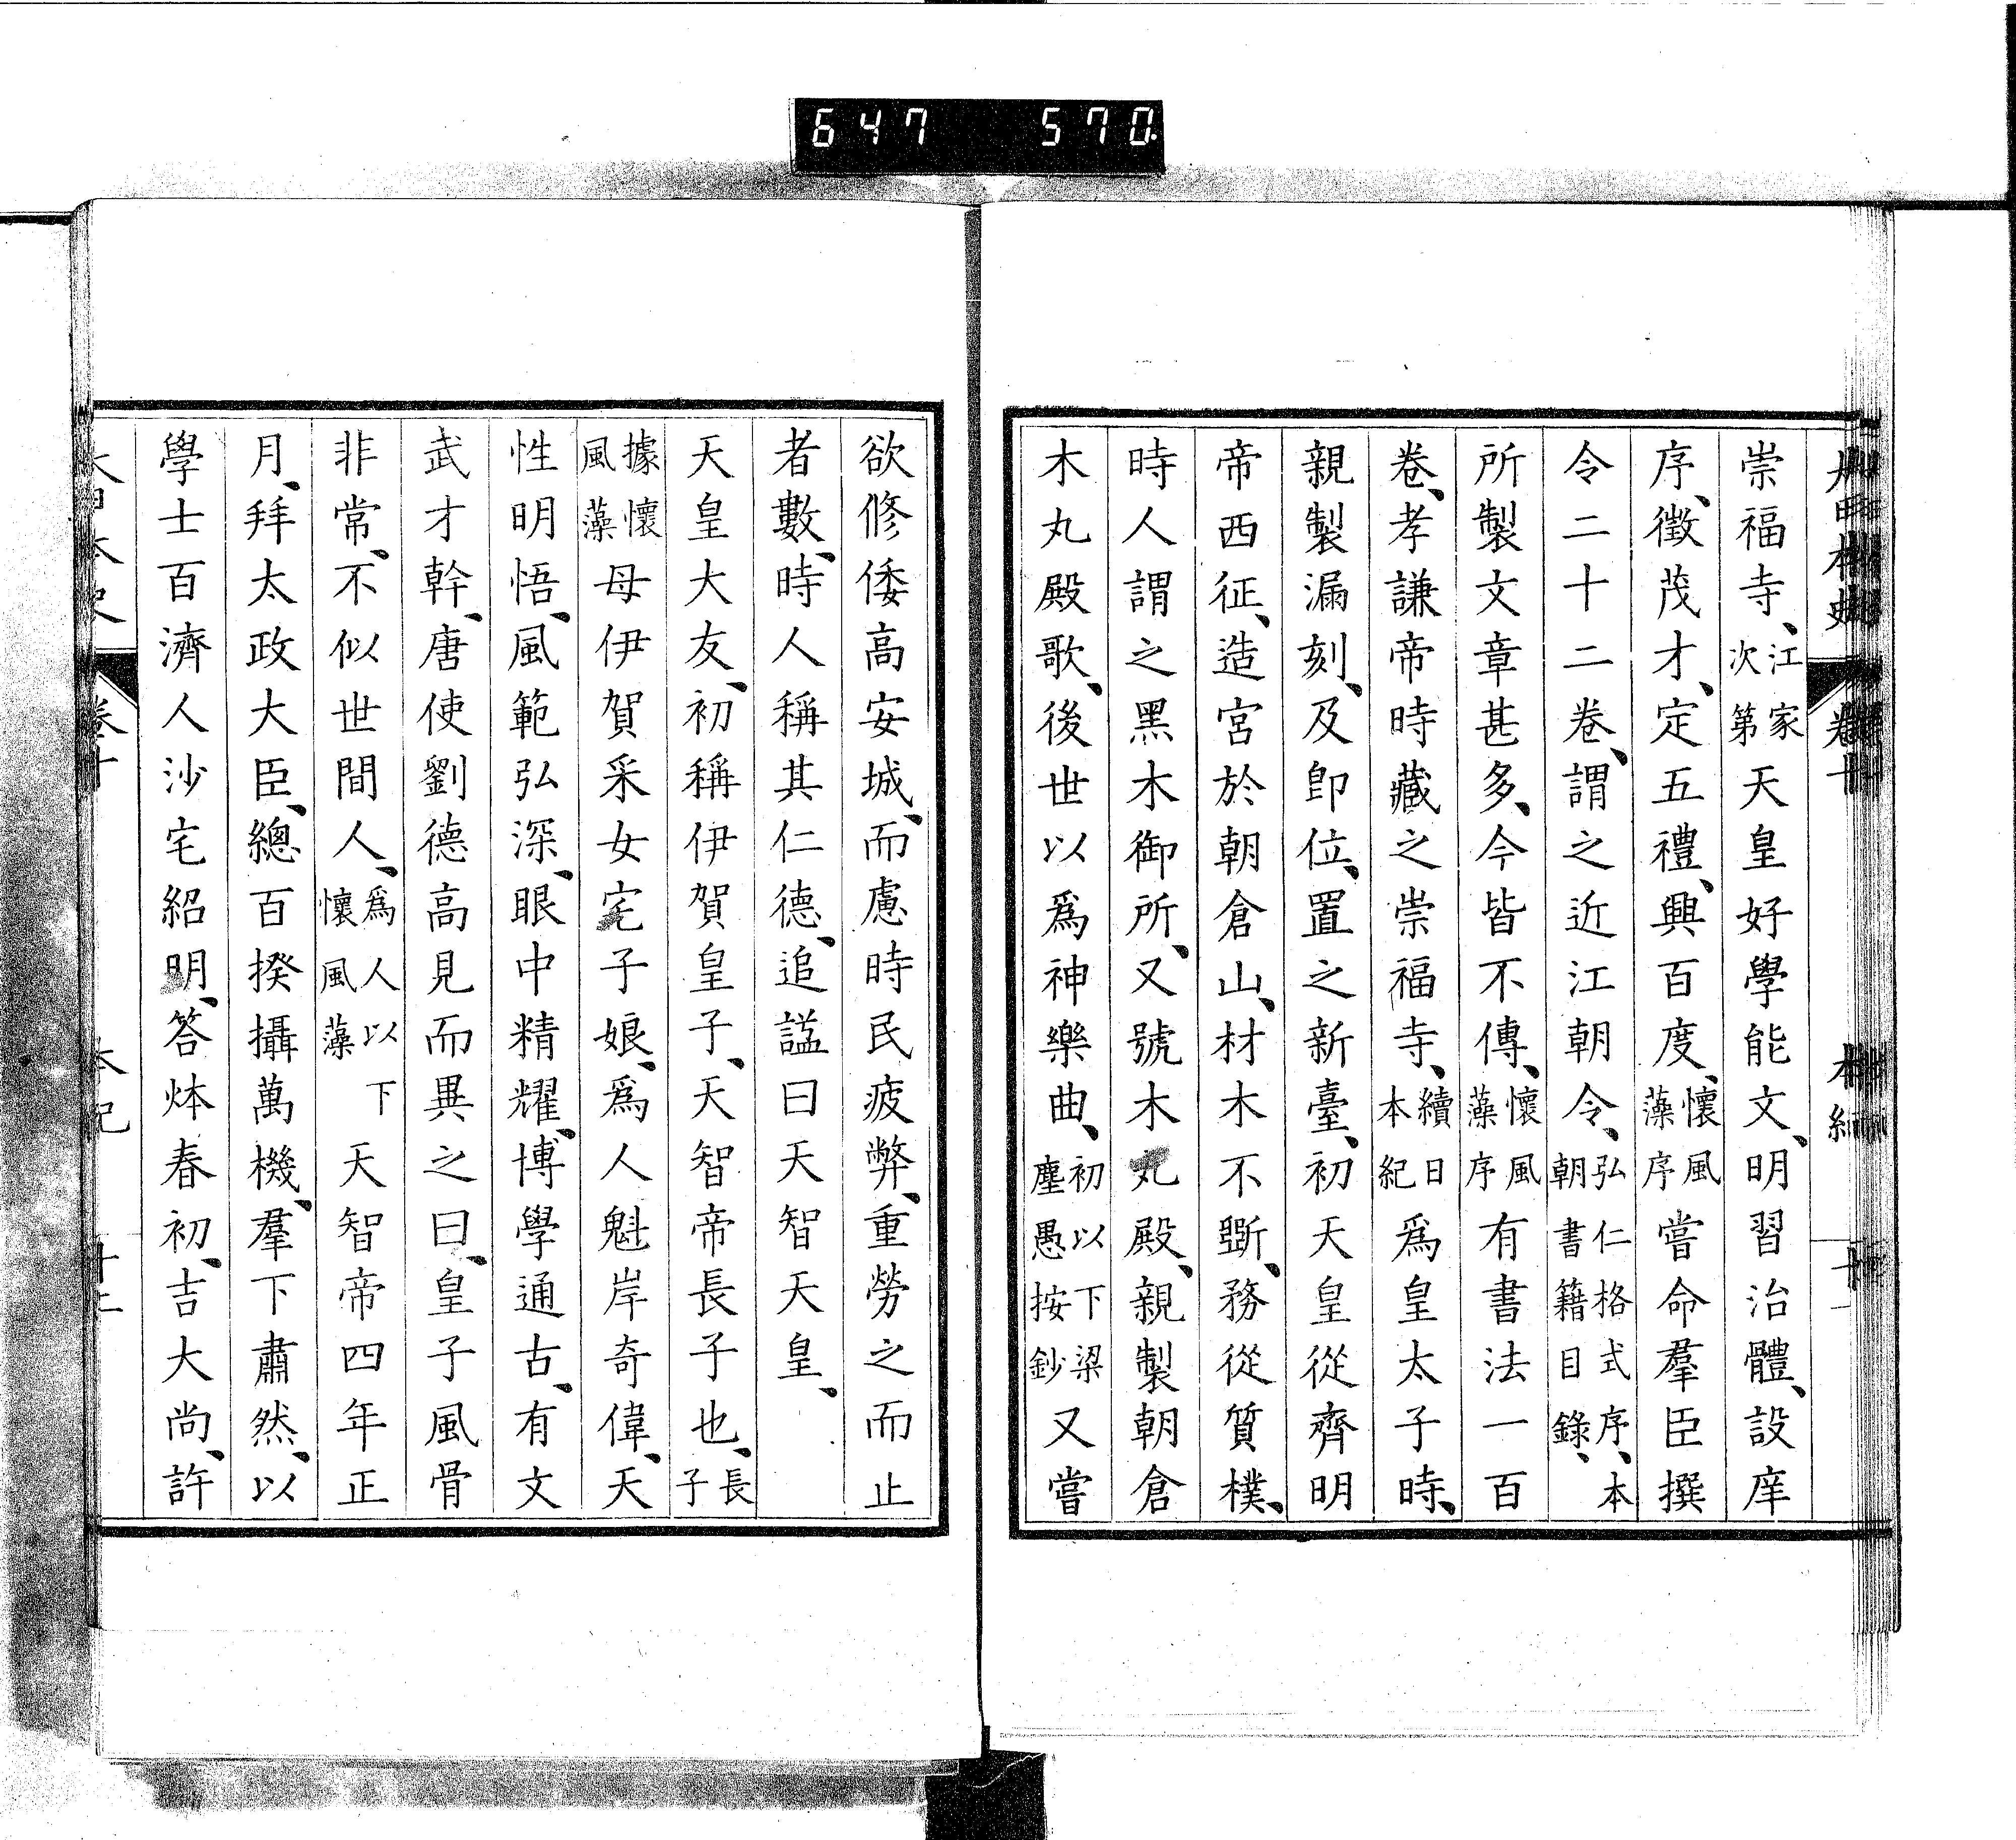 647 570
大日本史 卷十 本紀 十
崇福寺、江家次第天皇好學能文、明習治體、設庠
序、徵茂才、定五禮、興百度、懷風藻序嘗命羣臣撰
令二十二卷、謂之近江朝令、弘仁格式序、本朝書籍目錄、
所製文章甚多、今皆不傳、懷風藻序有書法一百
卷、孝謙帝時藏之崇福寺、續日本紀爲皇太子時、
親製漏刻、及卽位、置之新臺、初天皇從齊明
帝西征、造宮於朝倉山、材木不斲、務從質樸、
時人謂之黑木御所、又號木丸殿、親製朝倉
木丸殿歌、後世以爲神樂曲、初以下梁塵愚按鈔又嘗
欲修倭高安城、而慮時民疲弊、重勞之而止
者數、時人稱其仁德、追諡曰天智天皇、
天皇大友、初稱伊賀皇子、天智帝長子也、長子
據懷風藻母伊賀采女宅子娘、爲人魁岸奇偉、天
性明悟、風範弘深、眼中精耀、博學通古、有文
武才幹、唐使劉德高見而異之曰、皇子風骨
非常、不似世間人、爲人以下懷風藻天智帝四年正
月、拜太政大臣、總百揆攝萬機、羣下肅然、以
學士百濟人沙宅紹明、答㶱春初、吉大尚、許
大日本史 卷十 本紀